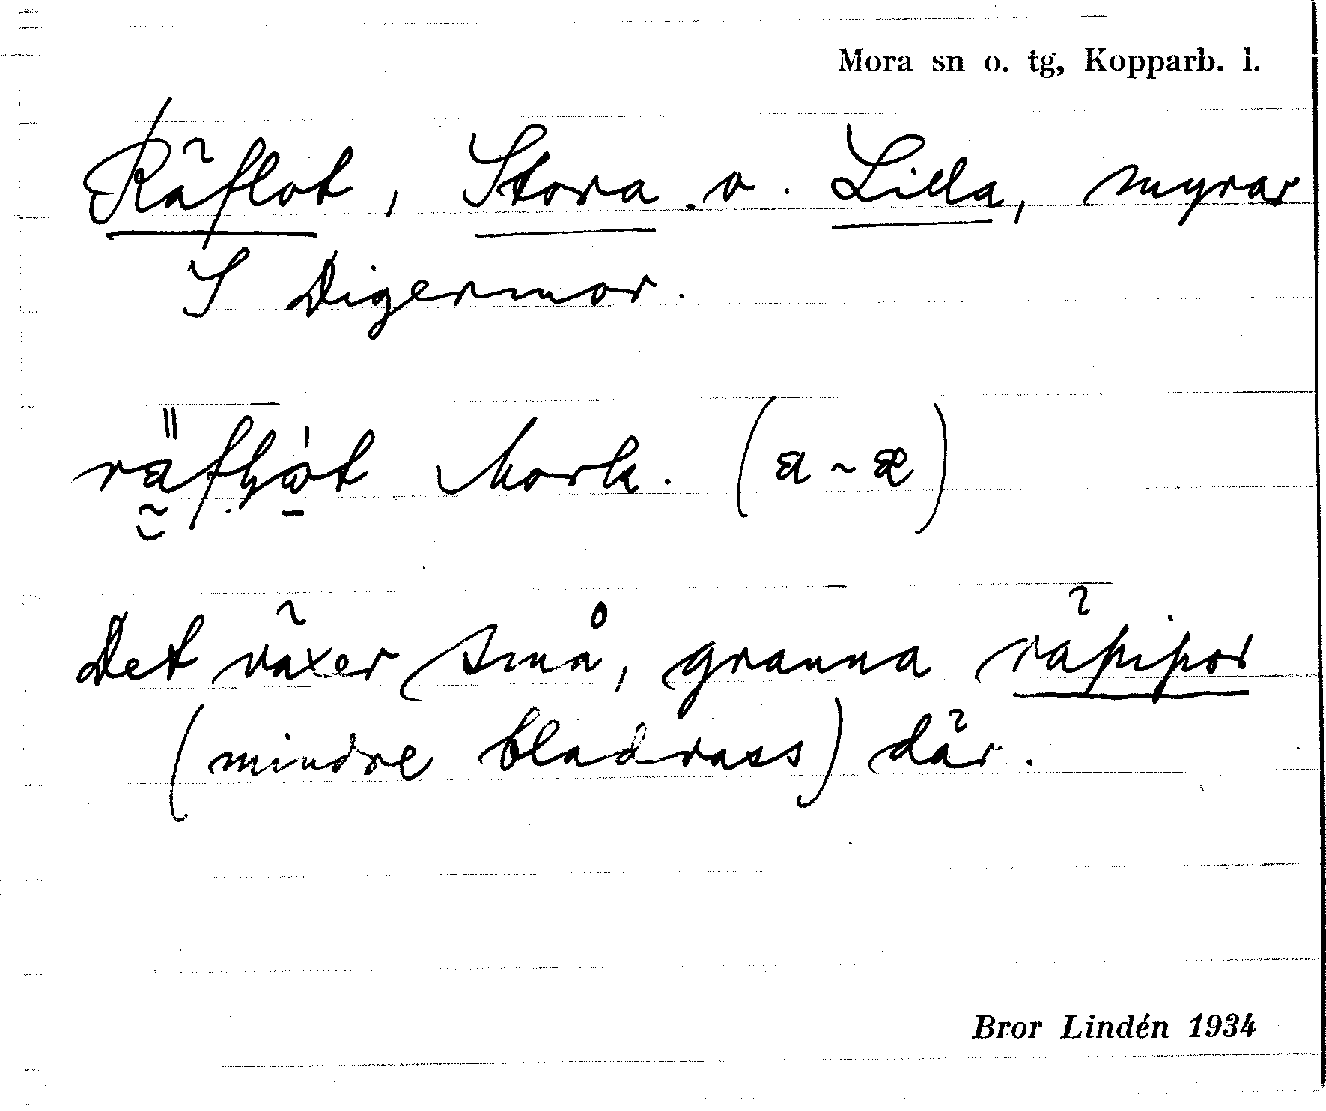 Mora sn o. tg, Kopparb. l.
Räflot, Stora o. Lilla, myrar
S Digermor.
Mork. (a ~ æ)
Det växer små, granna räpipor
(mindre bladvass) där.
Bror Lindén 1934